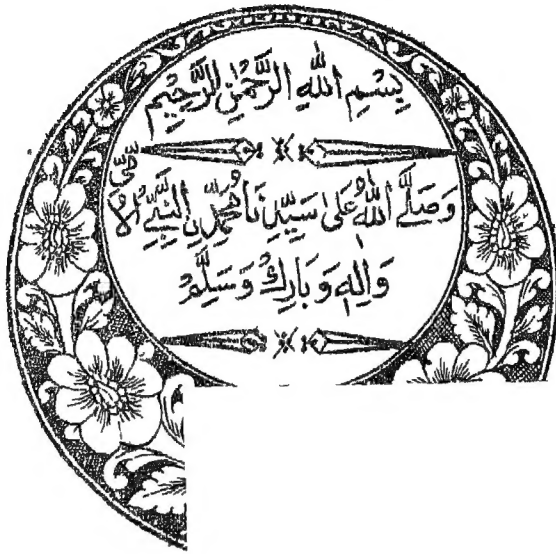 بِسْمِ اللّٰهِ الرَّحْمٰنِ الرَّحِيْمِ
وَصَلَّى اللّٰهُ عَلٰى سَيِّدِنَا مُحَمَّدِنِ النَّبِيِّ الْاُمِّيِّ
وَاٰلِهٖ وَبَارِكْ وَسَلِّمْ